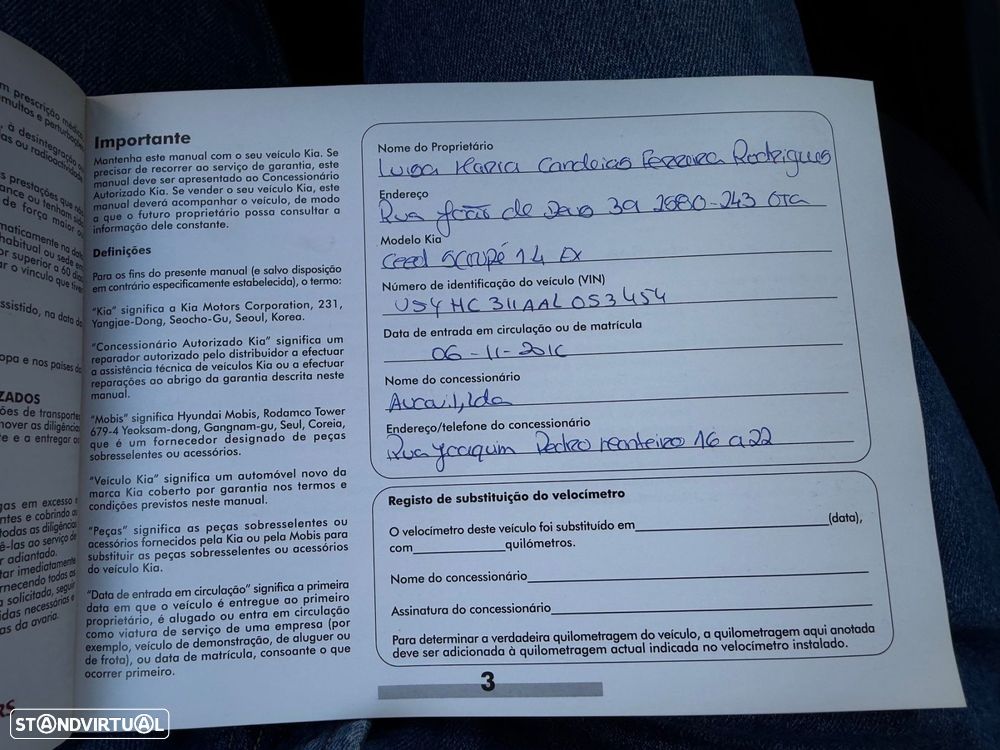 m prescrição médica,
multos e perturbações
, à desintegração
as ou radioactividade
s prestações que não
ance ou tenham sido
de força maior ou
maticamente na data
habitual ou sede em
or superior a 60 dias
r o vínculo que tiver
ssistido, na data do
opa e nos países do
ZADOS
ões de transporte
mover as diligências
te e a entregar os
gas em excesso e
ntes e cobrindo as
todas as diligências
ê-las ao serviço de
r adiantado.
tar imediatamente
rnecendo todas as
a solicitada, seguir
idas necessárias e
as da avaria.
RS
Importante
Mantenha este manual com o seu veículo Kia. Se
precisar de recorrer ao serviço de garantia, este
manual deve ser apresentado ao Concessionário
Autorizado Kia. Se vender o seu veículo Kia, este
manual deverá acompanhar o veículo, de modo
a que o futuro proprietário possa consultar a
informação dele constante.
Definições
Para os fins do presente manual (e salvo disposição
em contrário especificamente estabelecida), o termo:
"Kia" significa a Kia Motors Corporation, 231,
Yangjae-Dong, Seocho-Gu, Seoul, Korea.
"Concessionário Autorizado Kia" significa um
reparador autorizado pelo distribuidor a efectuar
a assistência técnica de veículos Kia ou a efectuar
reparações ao abrigo da garantia descrita neste
manual.
"Mobis" significa Hyundai Mobis, Rodamco Tower
679-4 Yeoksam-dong, Gangnam-gu, Seul, Coreia,
que é um fornecedor designado de peças
sobresselentes ou acessórios.
"Veículo Kia" significa um automóvel novo da
marca Kia coberto por garantia nos termos e
condições previstos neste manual.
"Peças" significa as peças sobresselentes ou
acessórios fornecidos pela Kia ou pela Mobis para
substituir as peças sobresselentes ou acessórios
do veículo Kia.
"Data de entrada em circulação" significa a primeira
data em que o veículo é entregue ao primeiro
proprietário, é alugado ou entra em circulação
como viatura de serviço de uma empresa (por
exemplo, veículo de demonstração, de aluguer ou
de frota), ou data de matrícula, consoante o que
ocorrer primeiro.
Nome do Proprietário
Luisa Maria Candeias Ferreira Rodrigues
Endereço
Rua João de Deus 39 2580-243 Ota
Modelo Kia
Ceed Scoupé 1.4 EX
Número de identificação do veículo (VIN)
U5YHC311AAL053454
Data de entrada em circulação ou de matrícula
06-11-2010
Nome do concessionário
Aurail, lda
Endereço/telefone do concessionário
Rua Joaquim Pedro Monteiro 16 a 22
Registo de substituição do velocímetro
O velocímetro deste veículo foi substituído em (data),
com quilómetros.
Nome do concessionário
Assinatura do concessionário
Para determinar a verdadeira quilometragem do veículo, a quilometragem aqui anotada
deve ser adicionada à quilometragem actual indicada no velocímetro instalado.
3
STANDVIRTUAL